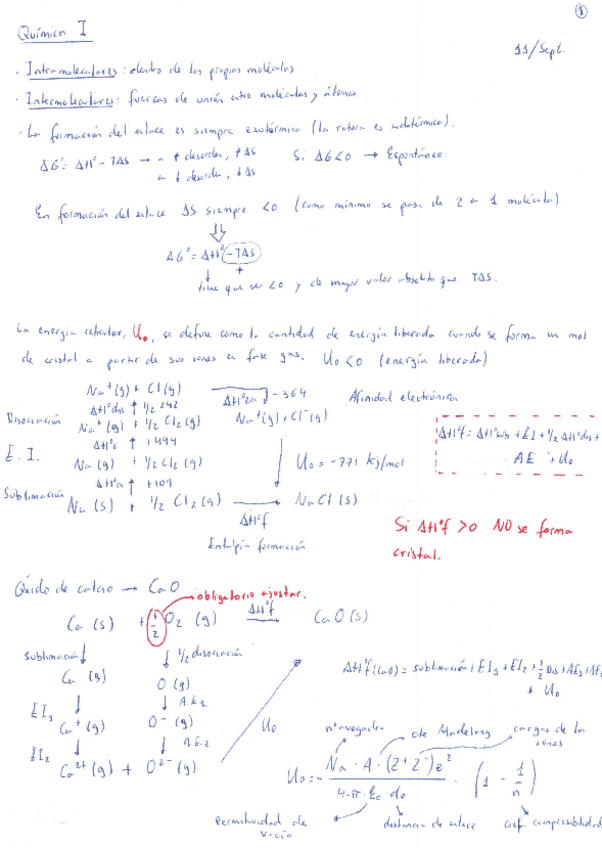 1
Química I
11/Sept.
· Intramoleculares: dentro de las propias moléculas
· Intermoleculares: fuerzas de unión entre moléculas y átomos.
· La formación del enlace es siempre exotérmica (la rotura es endotérmica).
ΔG°= ΔH° - TΔS → a ↑ desorden, ↑ΔS Si ΔG<0 → Espontáneo
a ↓ desorden, ↓ΔS
En formación del enlace ΔS siempre <0 (como mínimo se pasa de 2 a 1 molécula)
ΔG° = ΔH° - TΔS
+
tiene que ser <0 y de mayor valor absoluto que TΔS.
La energía reticular, U₀, se define como la cantidad de energía liberada cuando se forma un mol
de cristal a partir de sus iones en fase gas. U₀<0 (energía liberada)
Na⁺(g) + Cl(g) ΔH°ea -364 Afinidad electrónica
Disociación ΔH°dis ↑ 1/2 242 Na⁺(g) + Cl⁻(g)
Na⁺(g) + 1/2 Cl₂(g)
ΔH°f = ΔH°sub + EI + 1/2 ΔH°dis +
AE + U₀
E.I. ΔH°i ↑ +494
Na(g) + 1/2 Cl₂(g) U₀ = -771 kJ/mol
Sublimación ΔH°a ↑ +109
Na(s) + 1/2 Cl₂(g) → NaCl(s)
ΔH°f
Entalpía formación
Si ΔH°f >0 NO se forma
cristal.
Óxido de calcio → CaO
obligatorio ajustar.
Ca(s) + 1/2 O₂(g) ΔH°f → CaO(s)
sublimación ↓ ↓ 1/2 disociación
Ca(g) O(g)
ΔH°f(CaO) = sublimación + EI₁ + EI₂ + 1/2 Dis + AE₁ + AE
+ U₀
EI₁ ↓ ↓ A.E.1
Ca⁺(g) O⁻(g)
U₀
EI₂ ↓ ↓ A.E.2
Ca²⁺(g) + O²⁻(g)
nº avogadro cte Madelung cargas de los
iones
U₀ = - Na · A · (Z⁺Z⁻)e² / 4·π·ε₀·d₀ · (1 - 1/n)
Permitividad de vacío distancia de enlace coef compresibilidad